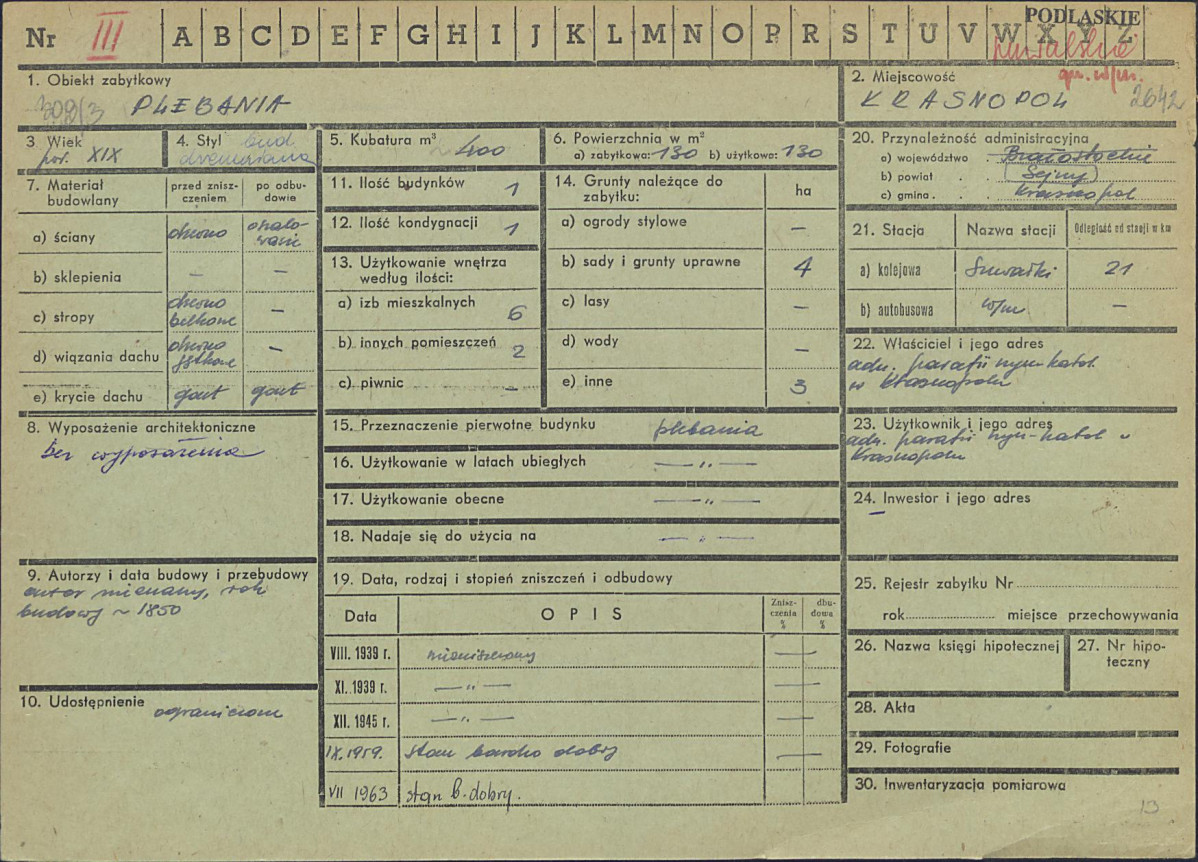 Nr III A B C D E F G H I J K L M N O P R S T U V W X Y Z
PODLASKIE
suwalskie
gm. w/m.
1. Obiekt zabytkowy
PLEBANIA
2. Miejscowość
KRASNOPOL 2642
3 Wiek
poł. XIX
4. Styl bud
drewniana
5. Kubatura m³ ~ 400
6. Powierzchnia w m²
a) zabytkowa: 130 b) użytkowa: 130
7. Materiał budowlany
przed zniszczeniem
po odbudowie
a) ściany drewno oszalowanie
b) sklepienia – –
c) stropy drewno belkowe –
d) wiązania dachu drewno –
e) krycie dachu gont gont
8. Wyposażenie architektoniczne
bez wyposażenia
9. Autorzy i data budowy i przebudowy
autor nieznany, rok
budowy ~ 1850
10. Udostępnienie ograniczone
11. Ilość budynków 1
12. Ilość kondygnacji 1
13. Użytkowanie wnętrza
według ilości:
a) izb mieszkalnych 6
b) innych pomieszczeń 2
c) piwnic –
14. Grunty należące do
zabytku: ha
a) ogrody stylowe –
b) sady i grunty uprawne 4
c) lasy –
d) wody –
e) inne 3
15. Przeznaczenie pierwotne budynku plebania
16. Użytkowanie w latach ubiegłych — „ —
17. Użytkowanie obecne — „ —
18. Nadaje się do użycia na — „ —
19. Data, rodzaj i stopień zniszczeń i odbudowy
Data OPIS Zniszczenia % dbudowa %
VIII. 1939 r. niezniszczony —
XI. 1939 r. — „ — —
XII. 1945 r. — „ — —
IX.1959. stan bardzo dobry —
VII 1963 stan b. dobry.
20. Przynależność administracyjna
a) województwo Białostockie
b) powiat (Sejny)
c) gmina Krasnopol
21. Stacja Nazwa stacji Odległość od stacji w km
a) kolejowa Suwałki 21
b) autobusowa w/m –
22. Właściciel i jego adres
adm. parafii rzym. katol.
w Krasnopolu
23. Użytkownik i jego adres
adm. parafii rzym-katol w
Krasnopolu
24. Inwestor i jego adres
–
25. Rejestr zabytku Nr
rok miejsce przechowywania
26. Nazwa księgi hipotecznej
27. Nr hipoteczny
28. Akta
29. Fotografie
30. Inwentaryzacja pomiarowa
13